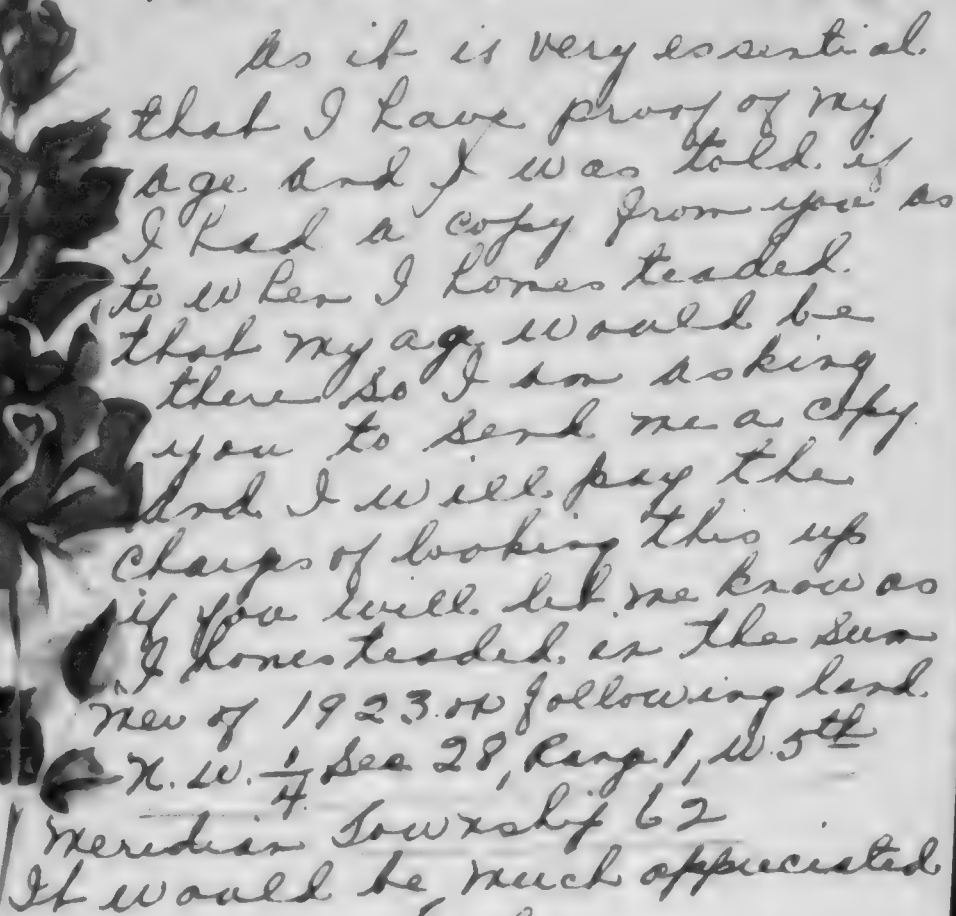 As it is very essential
that I have proof of my
age and I was told if
I had a copy from you as
to when I homesteaded
that my age would be
there so I am asking
you to send me a copy
and I will pay the
charges of looking this up
if you will let me know as
I homesteaded in the sum
mer of 1923 on following land
N.W. 1/4 Sec 28, Range 1, W. 5th
Meridian Township 62
It would be much appreciated